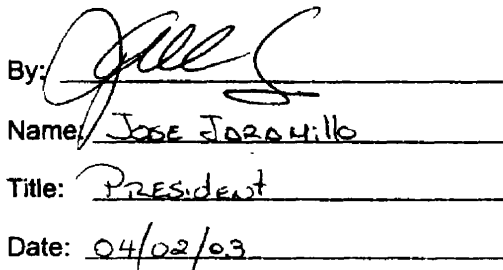 By:
Name: Jose Jaramillo
Title: President
Date: 04/02/03